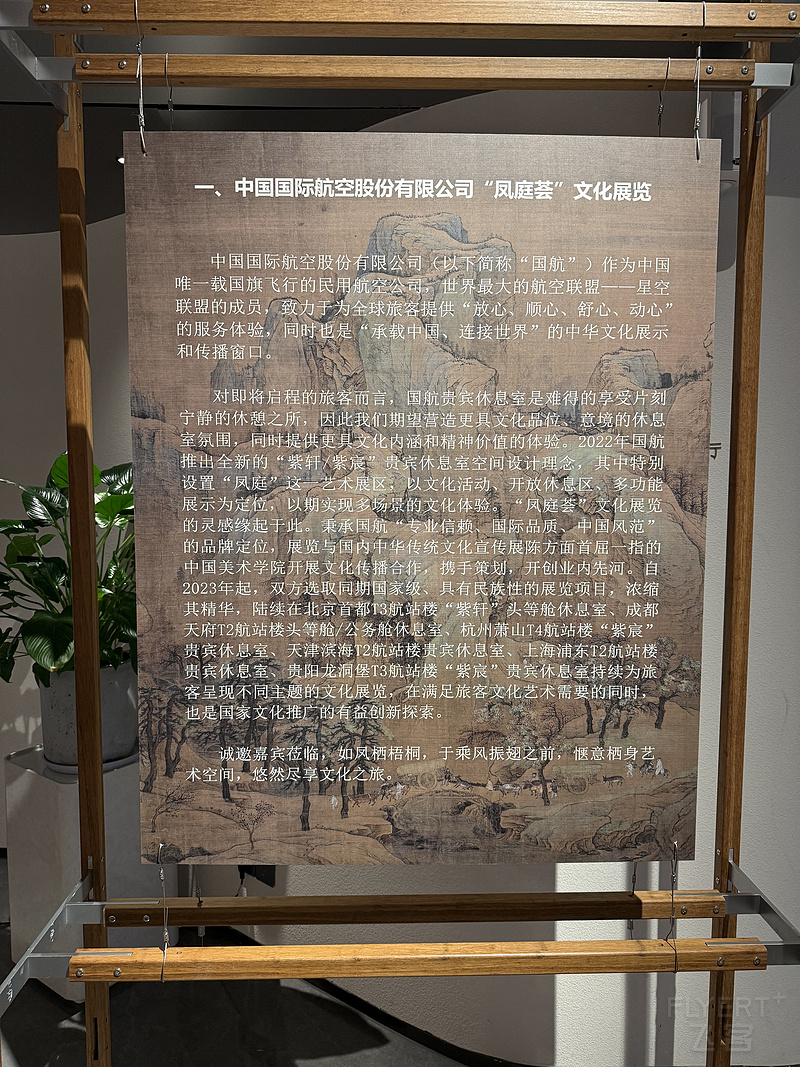 一、中国国际航空股份有限公司“凤庭荟”文化展览
中国国际航空股份有限公司（以下简称“国航”）作为中国
唯一载国旗飞行的民用航空公司，世界最大的航空联盟——星空
联盟的成员，致力于为全球旅客提供“放心、顺心、舒心、动心”
的服务体验，同时也是“承载中国、连接世界”的中华文化展示
和传播窗口。
对即将启程的旅客而言，国航贵宾休息室是难得的享受片刻
宁静的休憩之所，因此我们期望营造更具文化品位、意境的休息
室氛围，同时提供更具文化内涵和精神价值的体验。2022年国航
推出全新的“紫轩/紫宸”贵宾休息室空间设计理念，其中特别
设置“凤庭”这一艺术展区，以文化活动、开放休息区、多功能
展示为定位，以期实现多场景的文化体验。“凤庭荟”文化展览
的灵感缘起于此。秉承国航“专业信赖、国际品质、中国风范”
的品牌定位，展览与国内中华传统文化宣传展陈方面首屈一指的
中国美术学院开展文化传播合作，携手策划，开创业内先河。自
2023年起，双方选取同期国家级、具有民族性的展览项目，浓缩
其精华，陆续在北京首都T3航站楼“紫轩”头等舱休息室、成都
天府T2航站楼头等舱/公务舱休息室、杭州萧山T4航站楼“紫宸”
贵宾休息室、天津滨海T2航站楼贵宾休息室、上海浦东T2航站楼
贵宾休息室、贵阳龙洞堡T3航站楼“紫宸”贵宾休息室持续为旅
客呈现不同主题的文化展览，在满足旅客文化艺术需要的同时，
也是国家文化推广的有益创新探索。
诚邀嘉宾莅临，如凤栖梧桐，于乘风振翅之前，惬意栖身艺
术空间，悠然尽享文化之旅。
FLYERT+
飞客